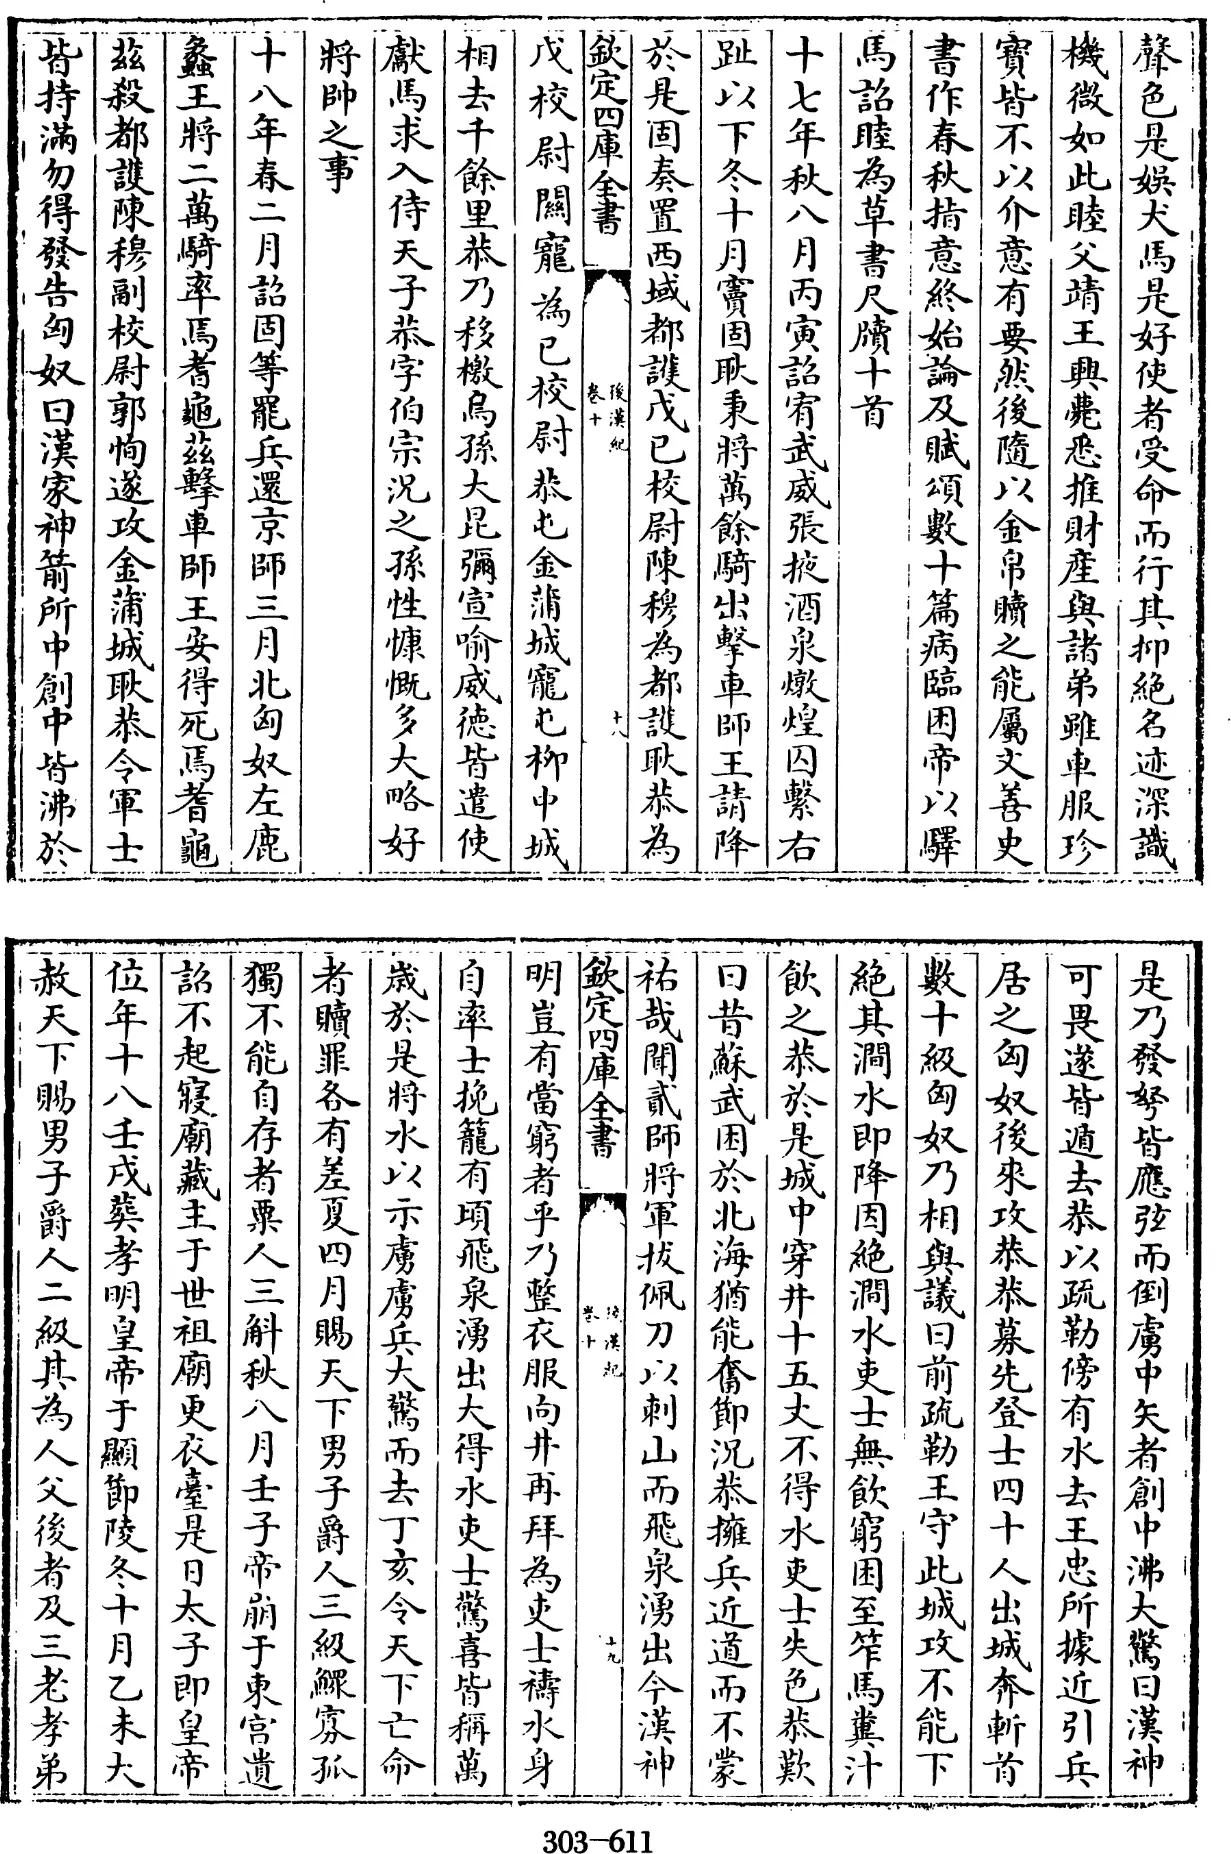 聲色是娛犬馬是好使者受命而行其抑絶名迹深識
機微如此睦父靖王興薨悉推財產與諸弟雖車服珍
寳皆不以介意有要然後隨以金帛贖之能屬文善史
書作春秋指意終始論及賦頌數十篇病臨困帝以驛
馬詔睦為草書尺牘十首
十七年秋八月丙寅詔宥武威張掖酒泉燉煌囚繫右
趾以下冬十月竇固耿秉將萬餘騎出擊車師王請降
於是固奏置西域都護戊已校尉陳穆為都護耿恭為
欽定四庫全書
後漢紀
卷十
十八
戊校尉關寵為已校尉恭屯金蒲城寵屯柳中城
相去千餘里恭乃移檄烏孫大昆彌宣喻威德皆遣使
獻馬求入侍天子恭字伯宗況之孫性慷慨多大略好
將帥之事
十八年春二月詔固等罷兵還京師三月北匈奴左鹿
蠡王將二萬騎率焉耆龜茲擊車師王安得死焉耆龜
茲殺都護陳穆副校尉郭恂遂攻金蒲城耿恭令軍士
皆持滿勿得發告匈奴曰漢家神箭所中創中皆沸於
是乃發弩皆應弦而倒虜中矢者創中沸大驚曰漢神
可畏遂皆遁去恭以疏勒傍有水去王忠所據近引兵
居之匈奴後來攻恭恭募先登士四十人出城奔斬首
數十級匈奴乃相與議曰前疏勒王守此城攻不能下
絶其澗水即降因絶澗水吏士無飲窮困至笮馬糞汁
飲之恭於是城中穿井十五丈不得水吏士失色恭歎
曰昔蘇武困於北海猶能奮節況恭擁兵近道而不蒙
祐哉聞貳師將軍拔佩刀以刺山而飛泉湧出今漢神
欽定四庫全書
後漢紀
卷十
十九
明豈有當窮者乎乃整衣服向井再拜為吏士禱水身
自率士挽籠有頃飛泉湧出大得水吏士驚喜皆稱萬
歲於是將水以示虜虜兵大驚而去丁亥令天下亡命
者贖罪各有差夏四月賜天下男子爵人三級鰥寡孤
獨不能自存者粟人三斛秋八月壬子帝崩于東宮遺
詔不起寢廟藏主于世祖廟更衣臺是日太子即皇帝
位年十八壬戌葬孝明皇帝于顯節陵冬十月乙未大
赦天下賜男子爵人二級其為人父後者及三老孝弟
303-611